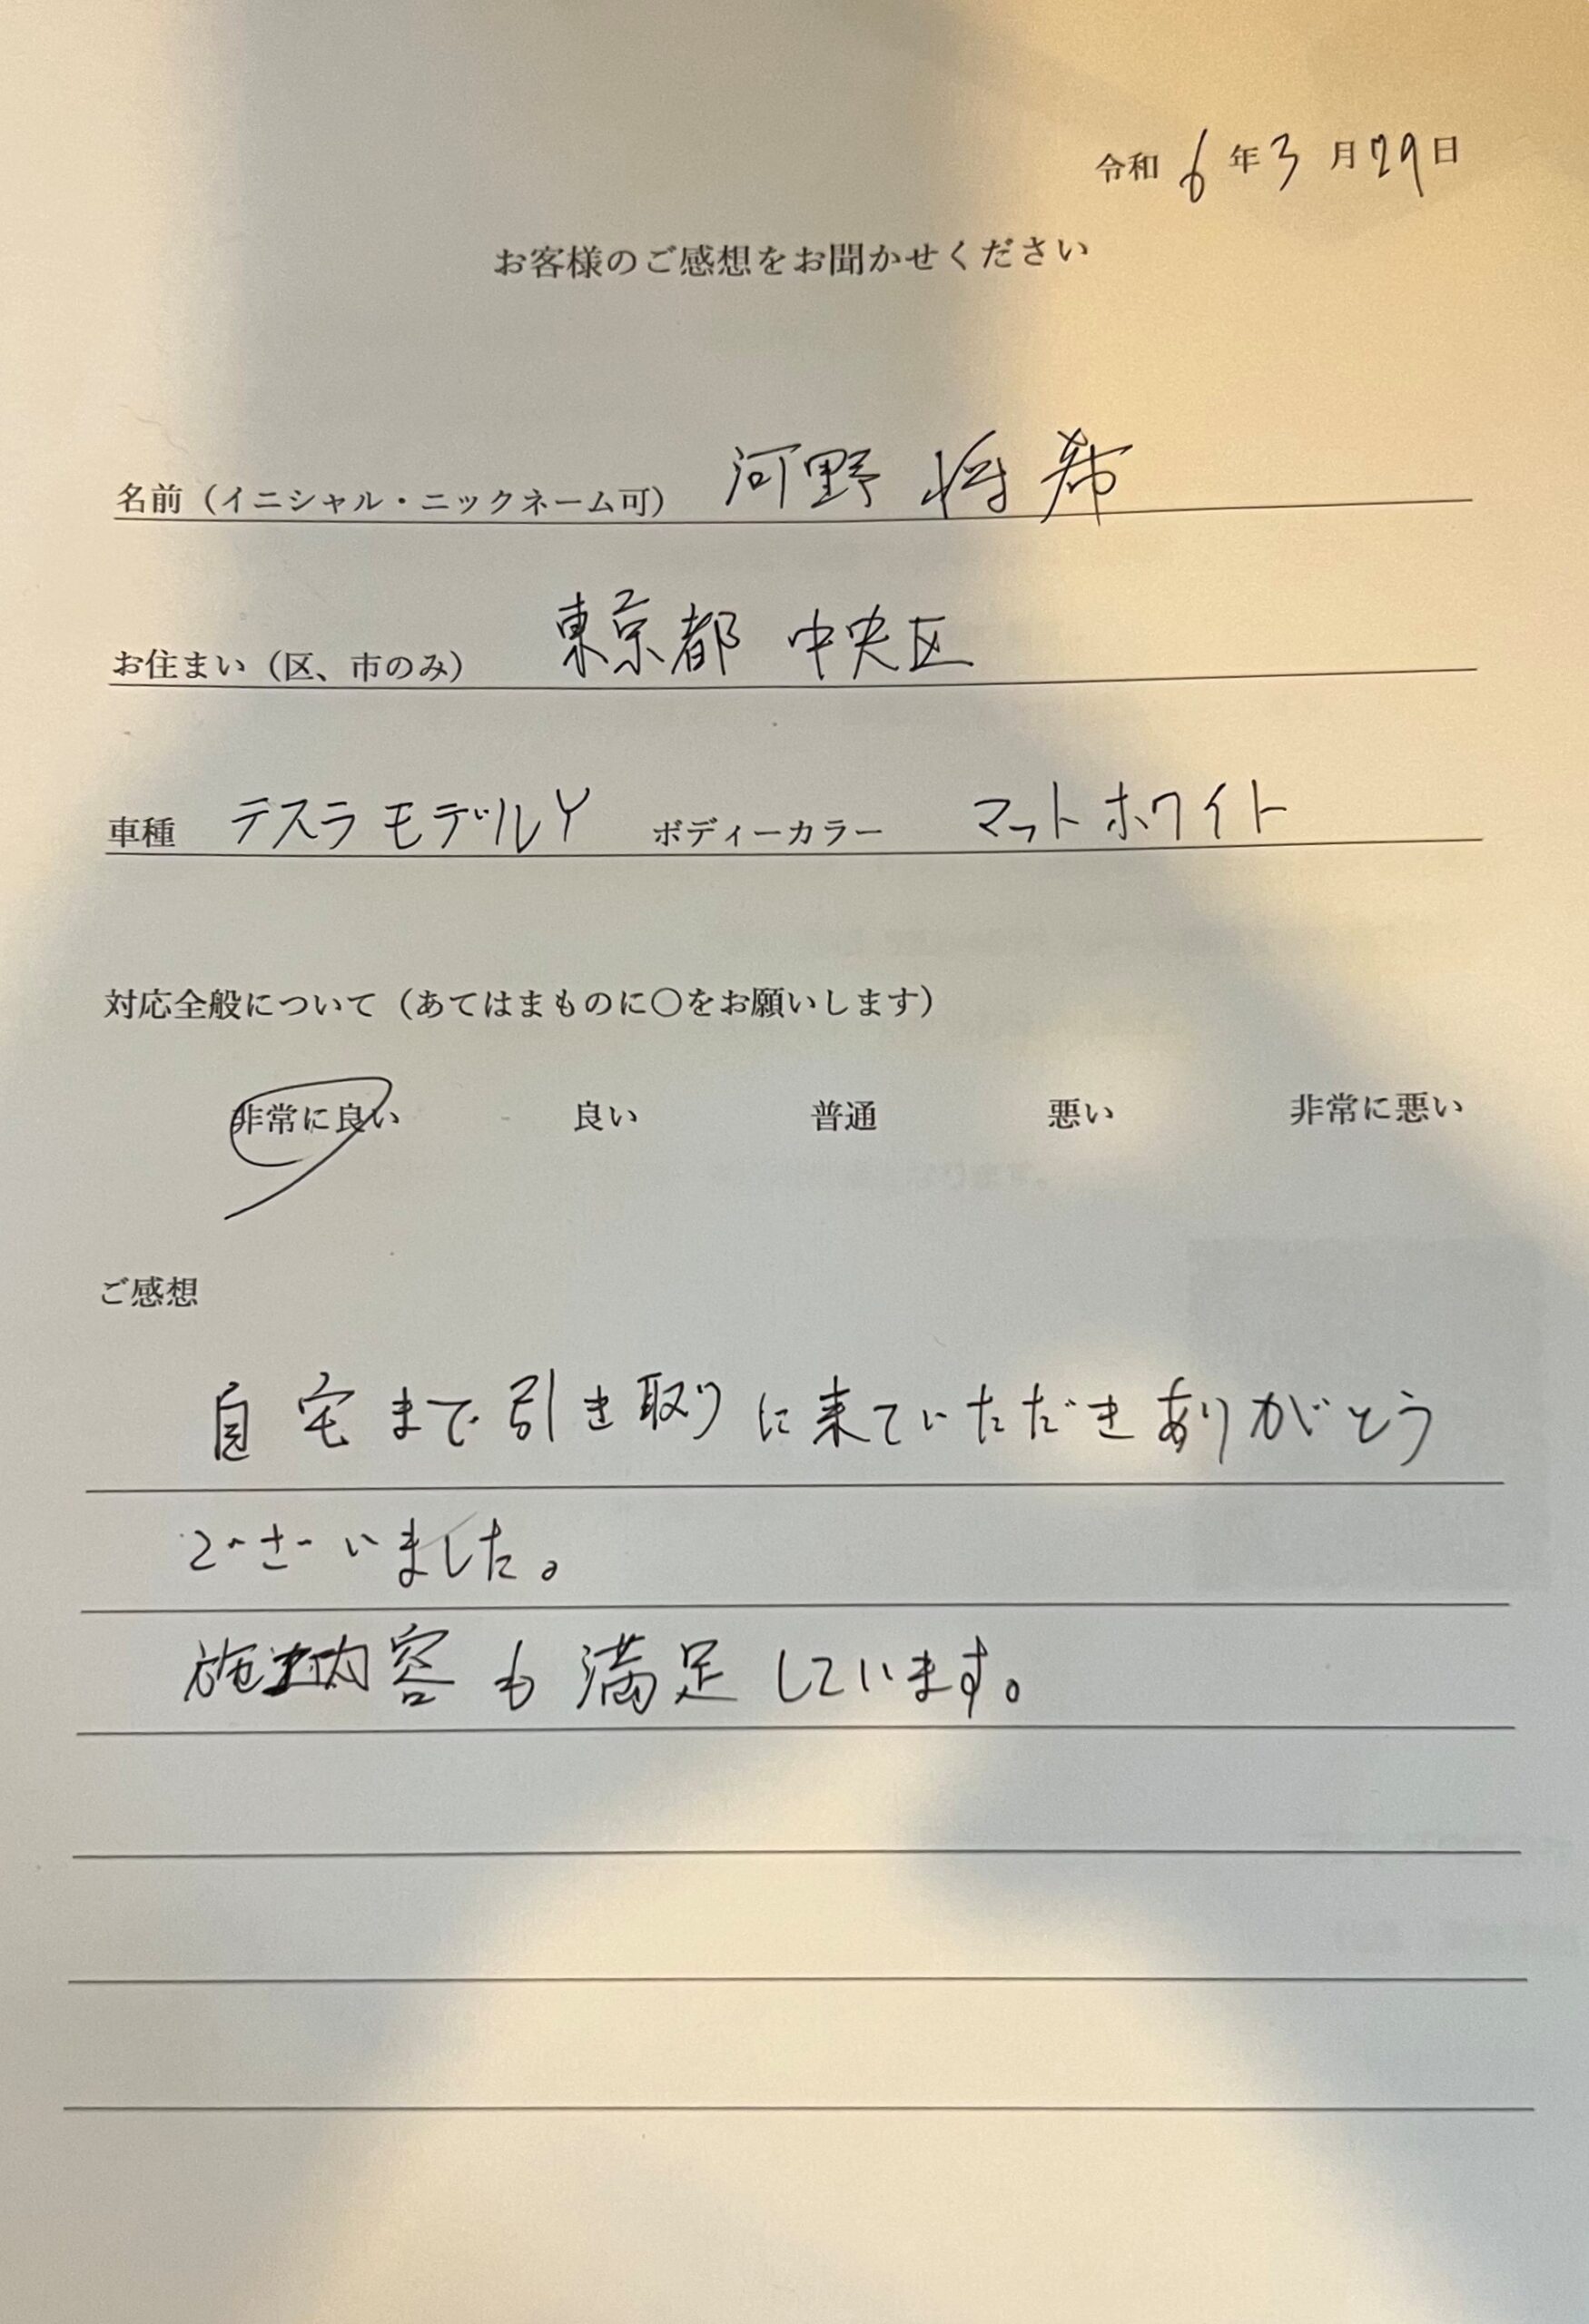 令和 6 年 3 月 29 日
お客様のご感想をお聞かせください
名前（イニシャル・ニックネーム可） 河野 将希
お住まい（区、市のみ） 東京都 中央区
車種 テスラ モデルY ボディーカラー マットホワイト
対応全般について（あてはまものに〇をお願いします）
非常に良い 良い 普通 悪い 非常に悪い
ご感想
自宅まで引き取りに来ていただきありがとう
ございました。
施工内容も満足しています。